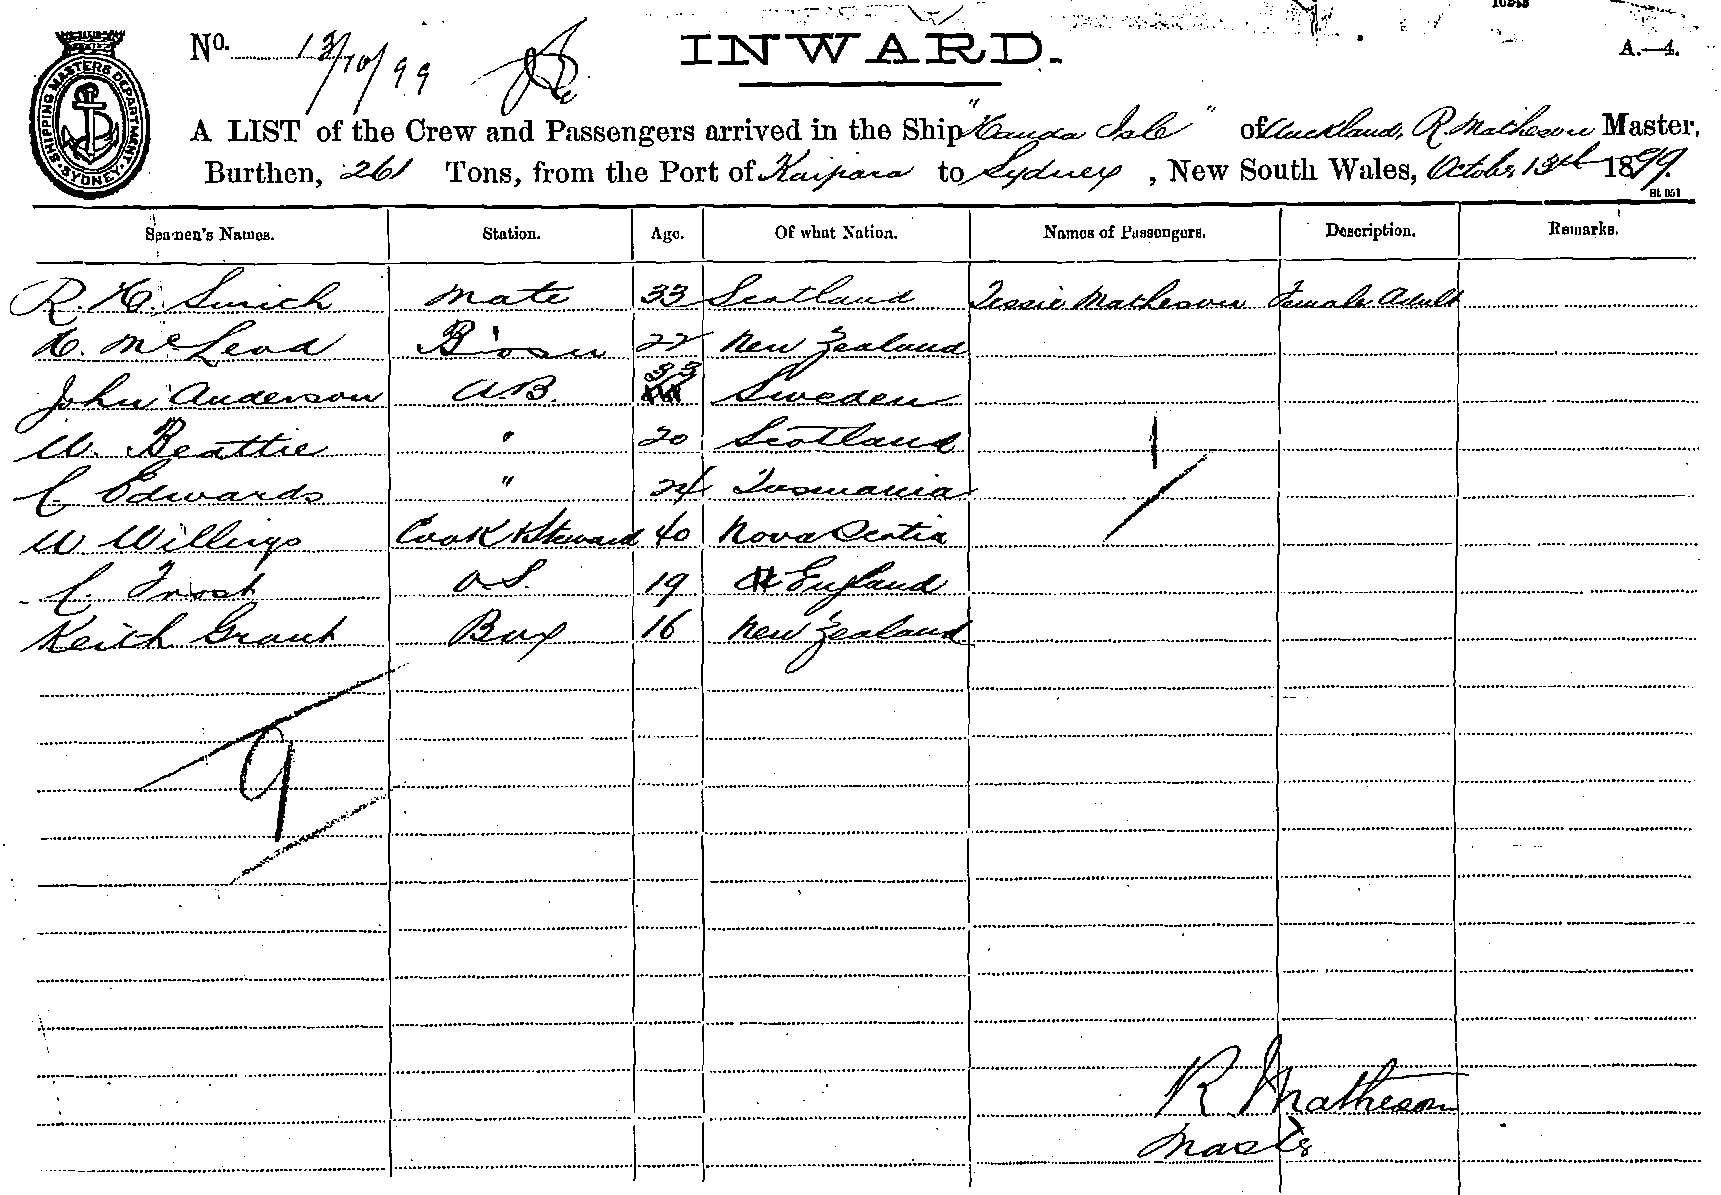 10843
No. 13/10/99 INWARD. A.—4.
SHIPPING MASTERS DEPARTMENT SYDNEY
A LIST of the Crew and Passengers arrived in the Ship "Handa Isle" of Auckland, R Matheson Master,
Burthen, 261 Tons, from the Port of Kaipara to Sydney, New South Wales, October 13th 1899.
St. 051
Seamen's Names. Station. Age. Of what Nation. Names of Passengers. Description. Remarks.
R. H. Smich Mate 33 Scotland Jessie Matheson Female Adult
H. McLeod B'osn 22 New Zealand
John Anderson A.B. 33 Sweden
W. Beattie " 20 Scotland 1
C Edwards " 24 Tasmania
W Willings Cook & Steward 40 Nova Scotia
C. Frost O.S. 19 England
Keith Grant Boy 16 New Zealand
9
R Matheson
Master